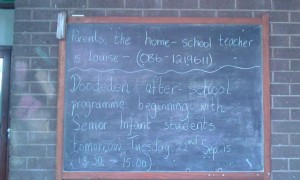 Parents, the home-school teacher
is Louise - (086-1219611)
Dondodon after-school
programme beginning with
Senior Infant Students
tomorrow Tuesday 22nd Sep.15
(13.30 - 15.00)